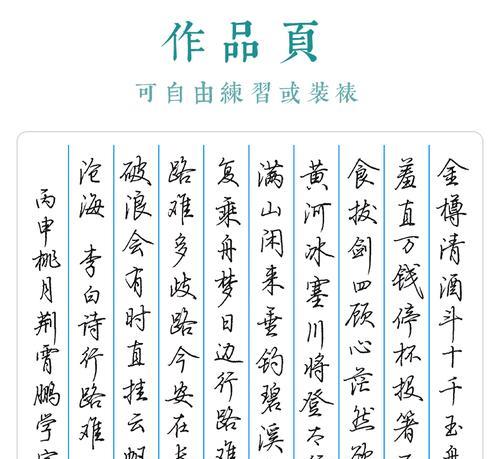 作品頁
可自由練習或装裱
金樽清酒斗十千玉
羞直万钱停杯投箸不
食拔剑四顾心茫然欲
黄河冰塞川将登太行
满山闲来垂钓碧溪
复乘舟梦日边行路难
路难多歧路今安在长
破浪会有时直挂云帆
沧海 李白诗行路难
丙申桃月荆霄鹏学